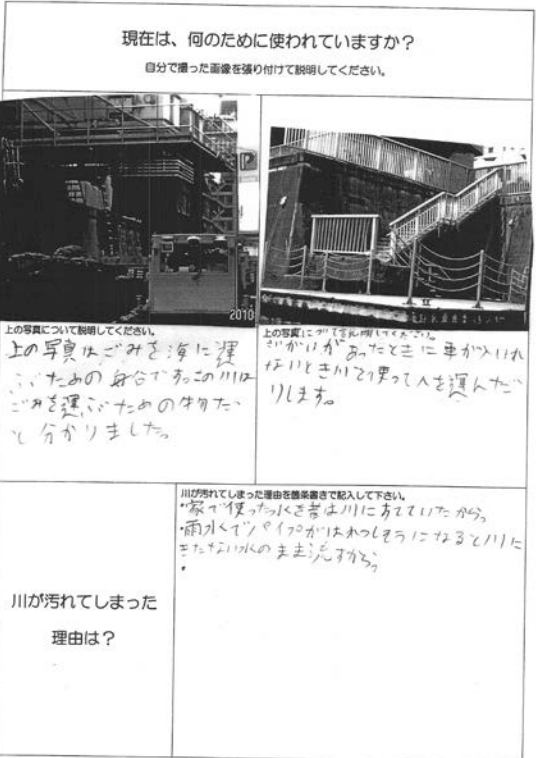 現在は、何のために使われていますか?
自分で撮った画像を張り付けて説明してください。
P
2010
上の写真について説明してください。
上の写真はごみを海に運
ぶための船です。この川は
ごみを運ぶための物だ
と分かりました。
上の写真について説明してください。
さいがいがあったときに車が入れ
ないとき川を使って人を運んだ
りします。
川が汚れてしまった
理由は?
川が汚れてしまった理由を箇条書きで記入して下さい。
・家で使った水を昔は川にすてていたから。
・雨水でパイプがはれつしそうになると川に
きたない水のまま流すから。
・